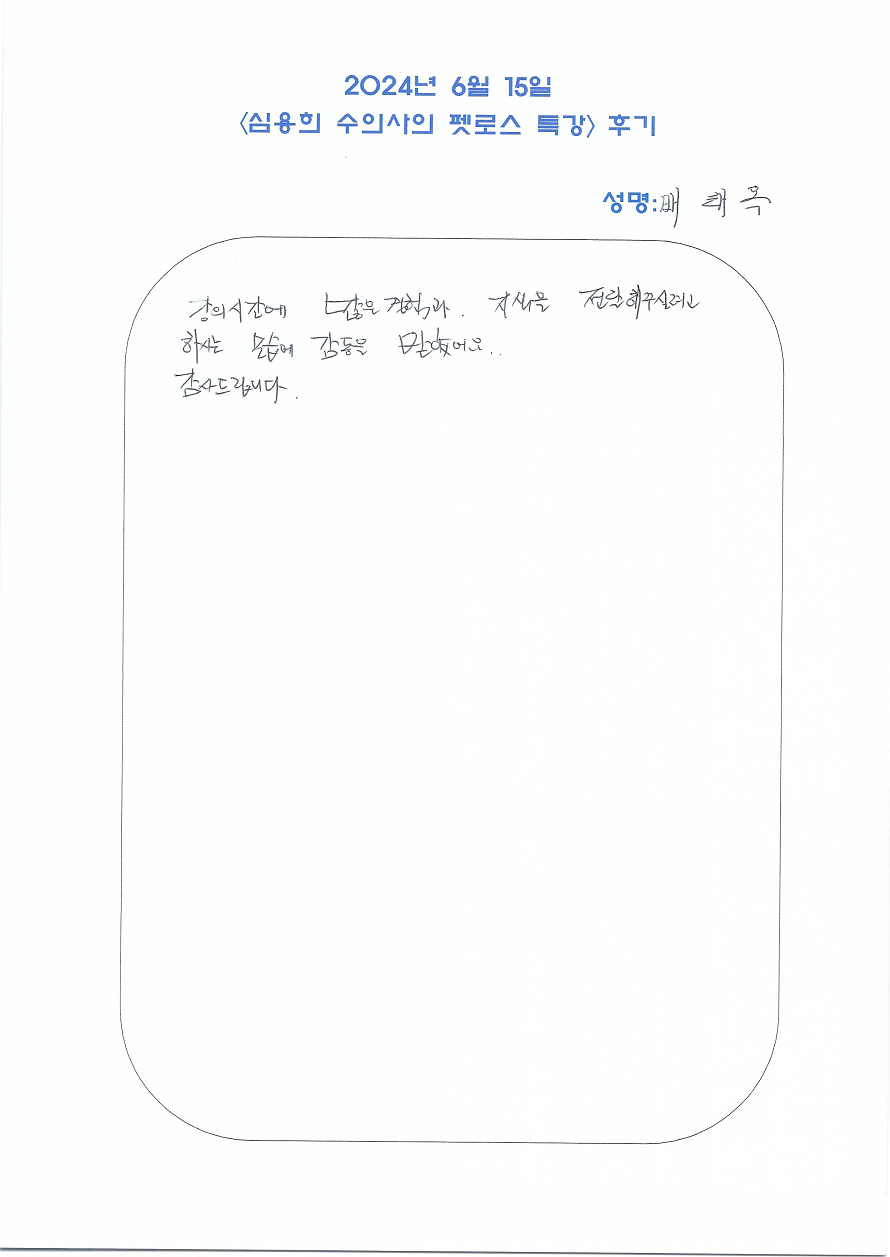 2024년 6월 15일
<심용희 수의사의 펫로스 특강> 후기
성명: 배 태 옥
강의시간에 많은 경험과. 지식을 전달해주실려고
하시는 모습에 감동을 받았어요..
감사드립니다.